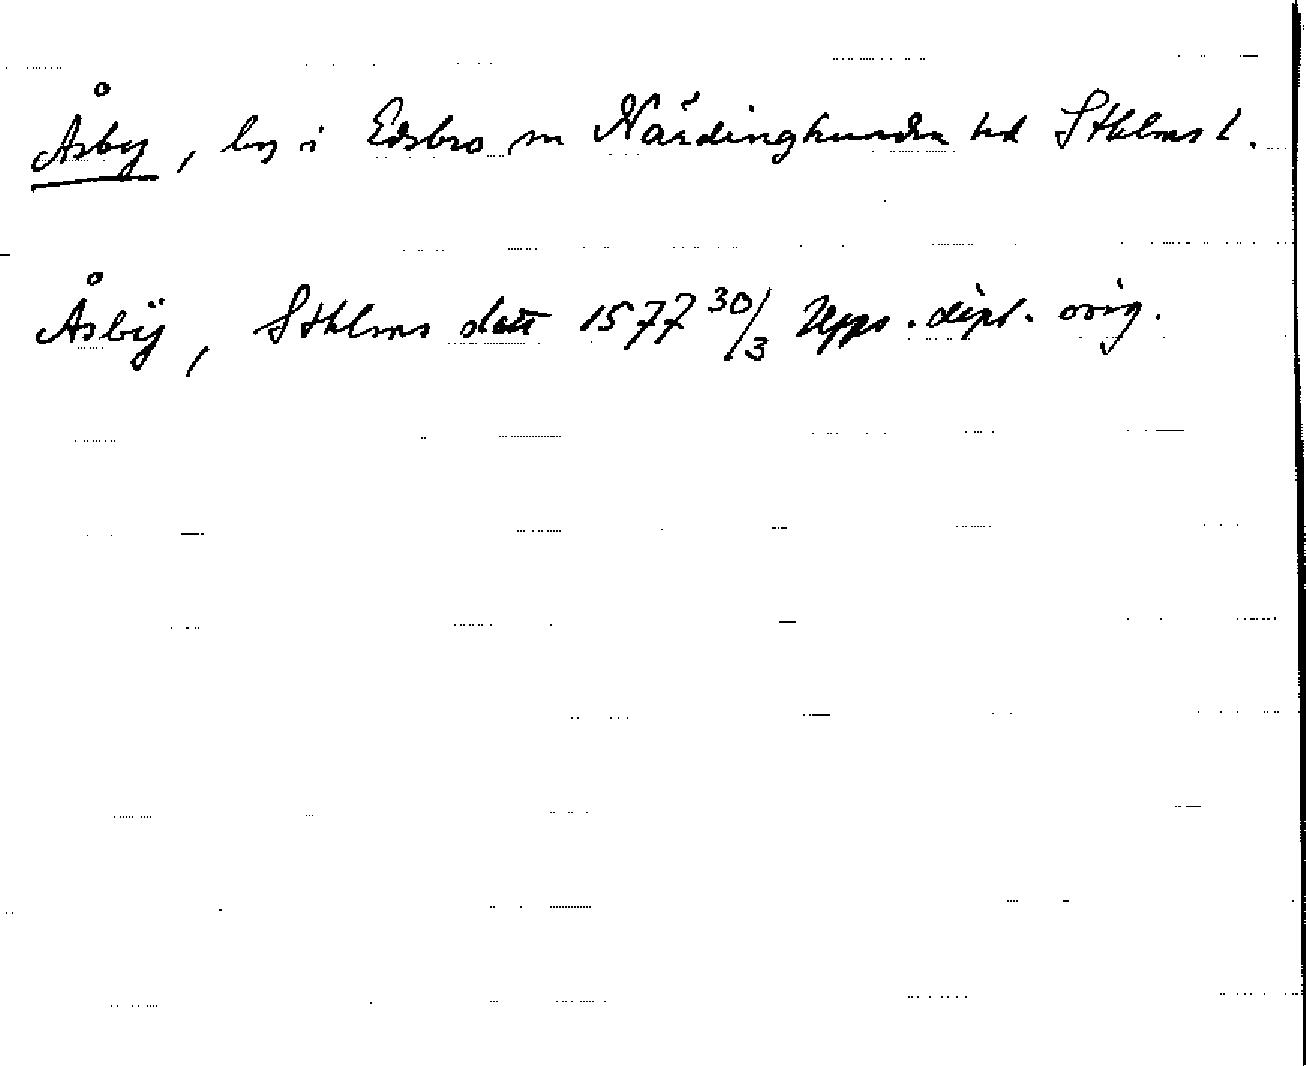 Åsby, by i Edsbro sn Närdinghundra hd Sthlms l.
Åsbÿ, Sthlms 1577 30/3 Upps. dipl. orig.